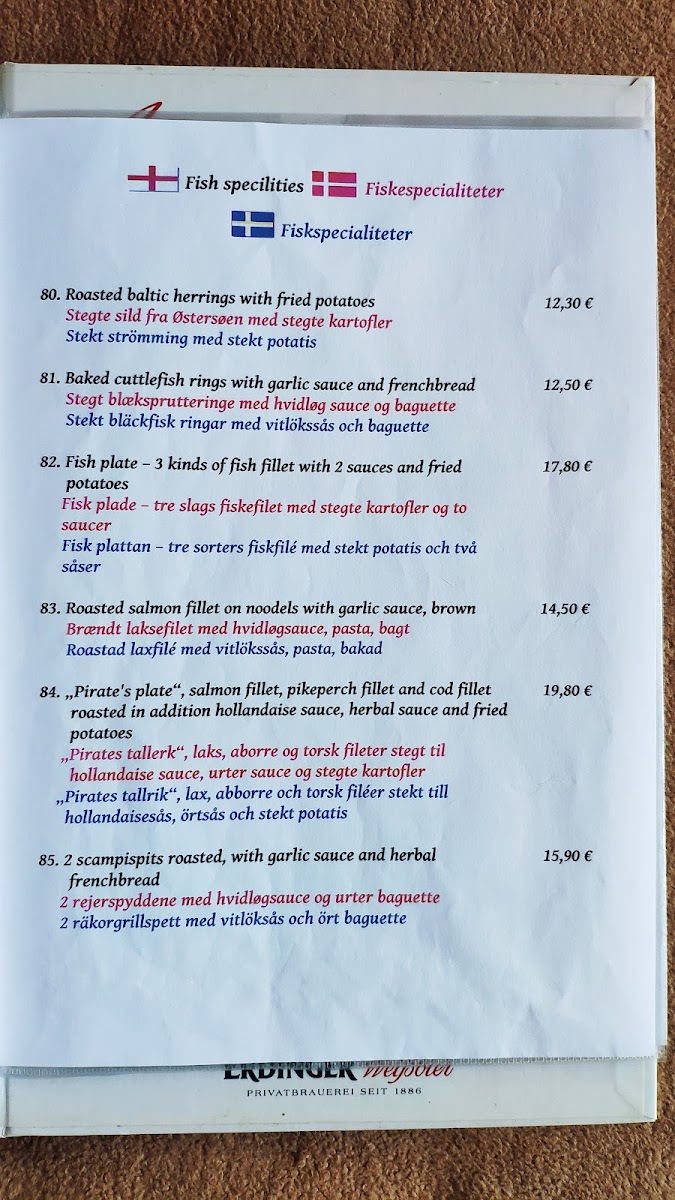 Fish specilities Fiskespecialiteter
Fiskspecialiteter
80. Roasted baltic herrings with fried potatoes 12,30 €
Stegte sild fra Østersøen med stegte kartofler
Stekt strömming med stekt potatis
81. Baked cuttlefish rings with garlic sauce and frenchbread 12,50 €
Stegt blæksprutteringe med hvidløg sauce og baguette
Stekt bläckfisk ringar med vitlökssås och baguette
82. Fish plate – 3 kinds of fish fillet with 2 sauces and fried 17,80 €
potatoes
Fisk plade – tre slags fiskefilet med stegte kartofler og to
saucer
Fisk plattan – tre sorters fiskfilé med stekt potatis och två
såser
83. Roasted salmon fillet on noodels with garlic sauce, brown 14,50 €
Brændt laksefilet med hvidløgsauce, pasta, bagt
Roastad laxfilé med vitlökssås, pasta, bakad
84. „Pirate's plate“, salmon fillet, pikeperch fillet and cod fillet 19,80 €
roasted in addition hollandaise sauce, herbal sauce and fried
potatoes
„Pirates tallerk“, laks, aborre og torsk fileter stegt til
hollandaise sauce, urter sauce og stegte kartofler
„Pirates tallrik“, lax, abborre och torsk filéer stekt till
hollandaisesås, örtsås och stekt potatis
85. 2 scampispits roasted, with garlic sauce and herbal 15,90 €
frenchbread
2 rejerspyddene med hvidløgsauce og urter baguette
2 räkorgrillspett med vitlöksås och ört baguette
ERDINGER Weißbier
PRIVATBRAUEREI SEIT 1886